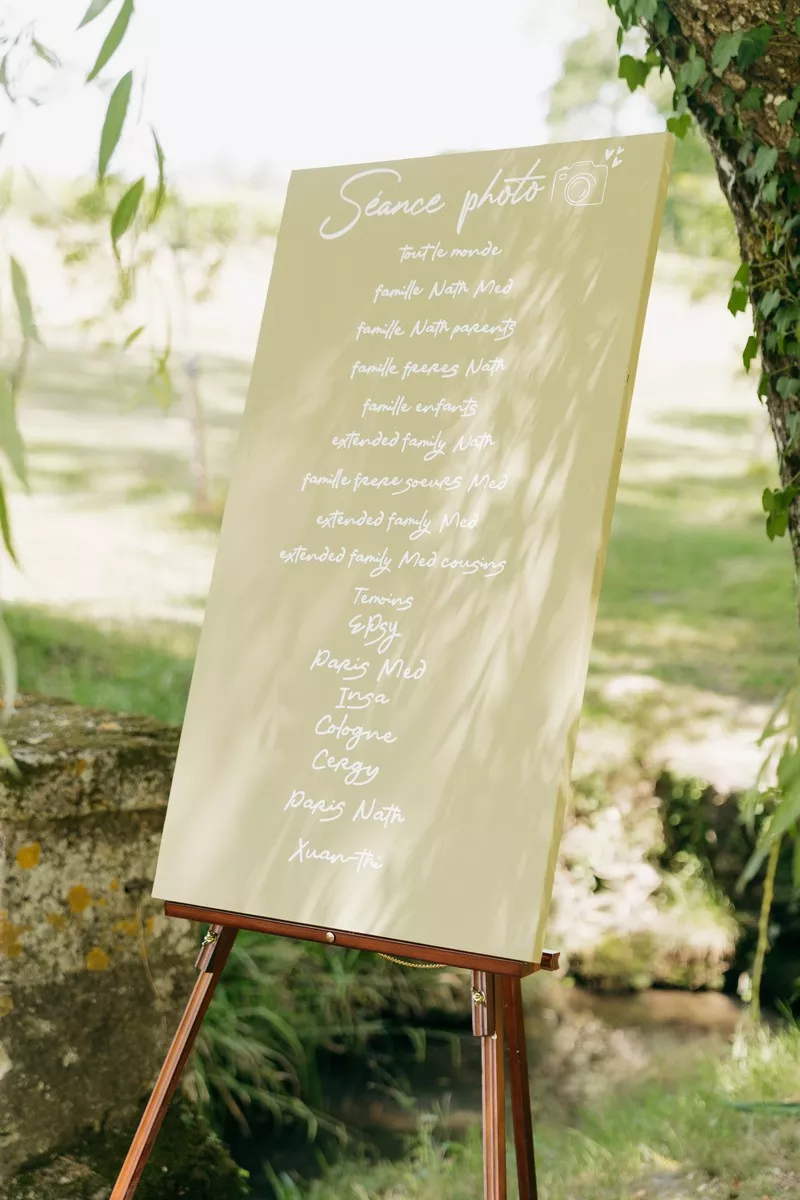 Séance photo
tout le monde
famille Nath Med
famille Nath parents
famille freres Nath
famille enfants
extended family Nath
famille frere soeurs Med
extended family Med
extended family Med cousins
Temoins
EPSY
Paris Med
Insa
Cologne
Cergy
Paris Nath
Xuan-thi